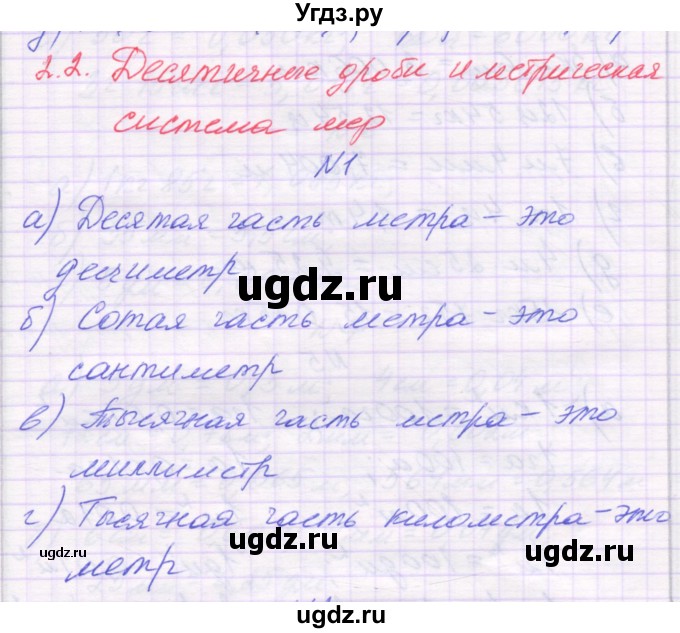 Угдз.ру
2.2. Десятичные дроби и метрическая
система мер
№1
а) Десятая часть метра – это
дециметр
ugdz.ru
б) Сотая часть метра – это
сантиметр
в) Тысячная часть метра – это
миллиметр
г) Тысячная часть километра – это
ugdz.ru
метр
ugdz.ru
ugdz.ru